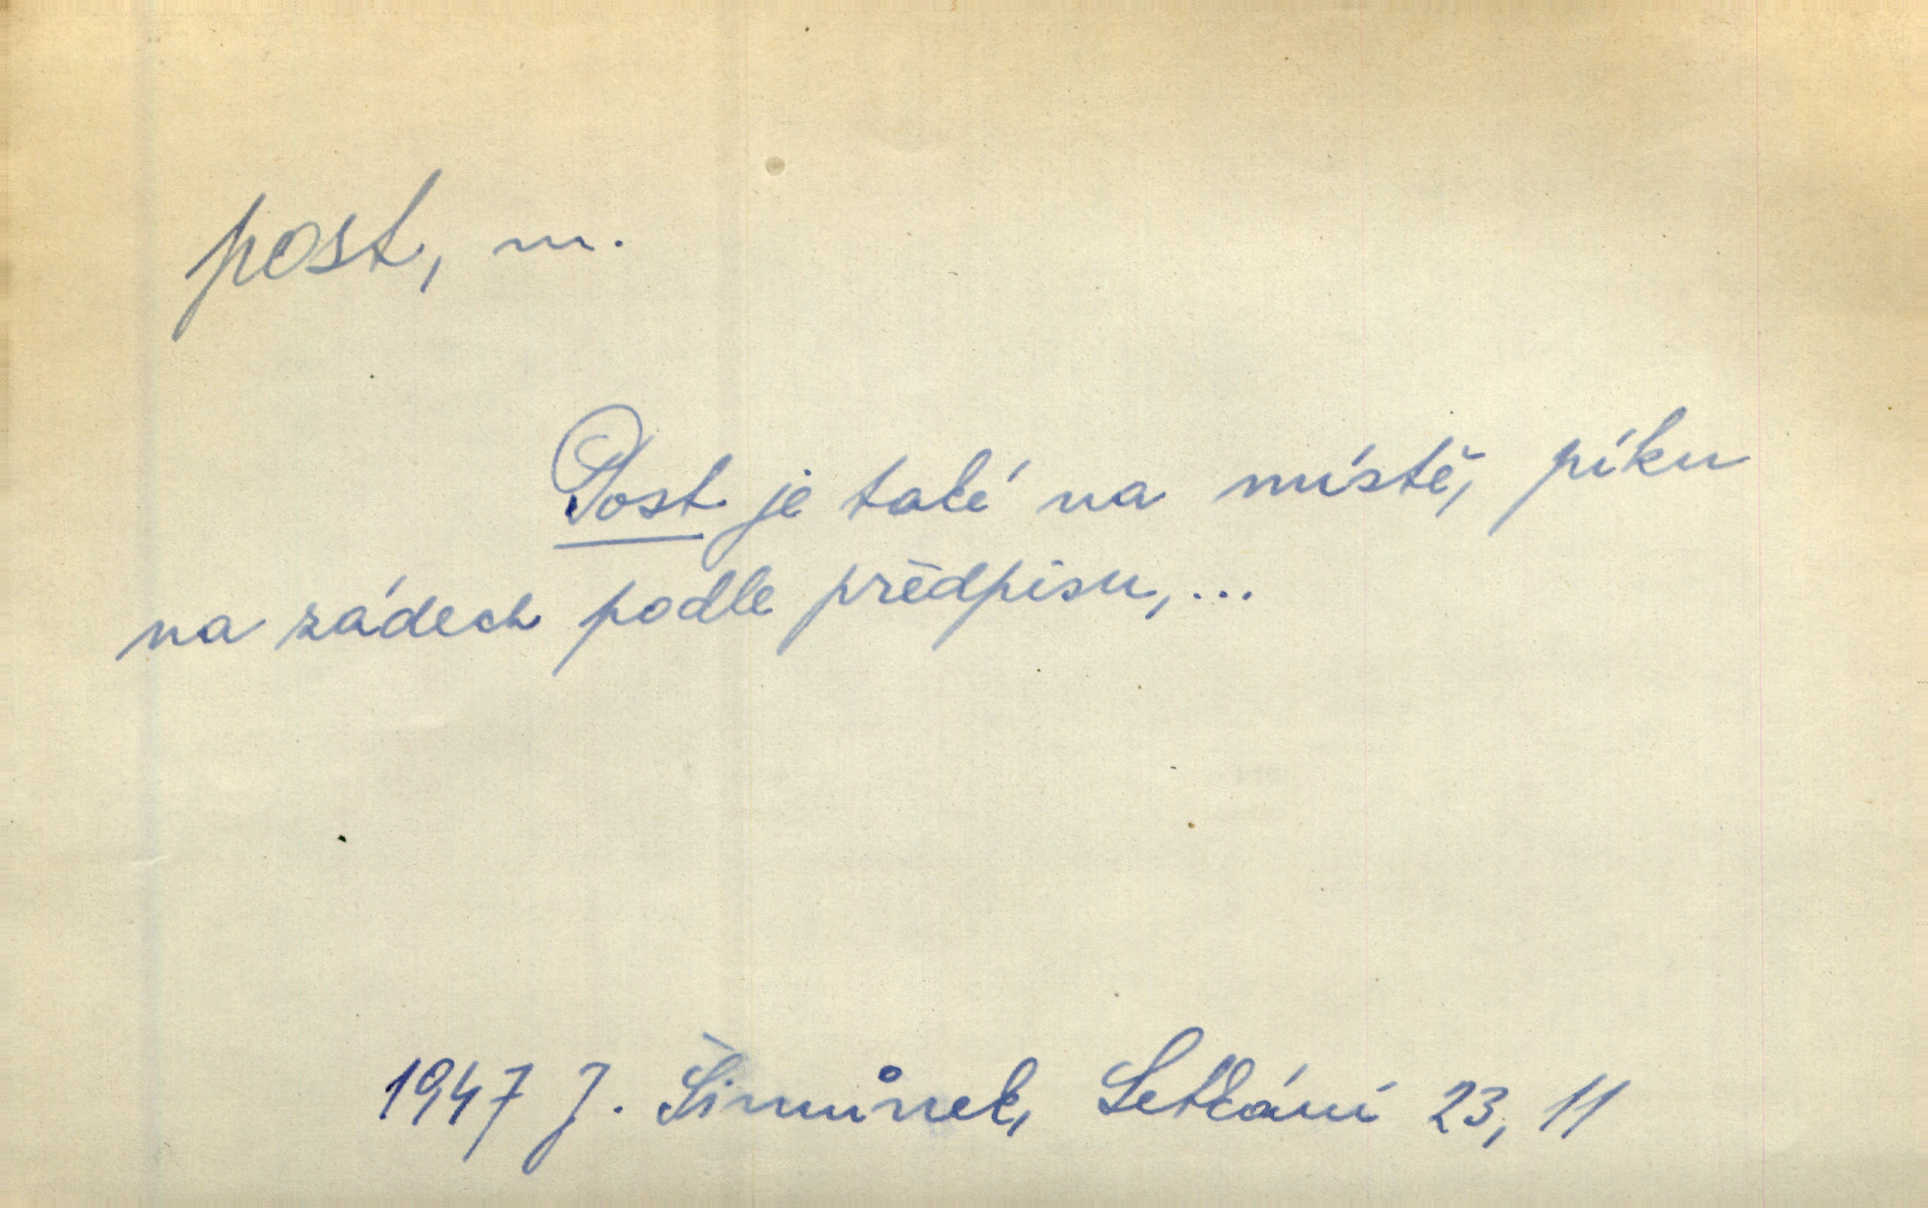 post, m.
Post je také na místě, píku
na zádech podle předpisu, ...
1947 J. Šimůnek, Setkání 23, 11